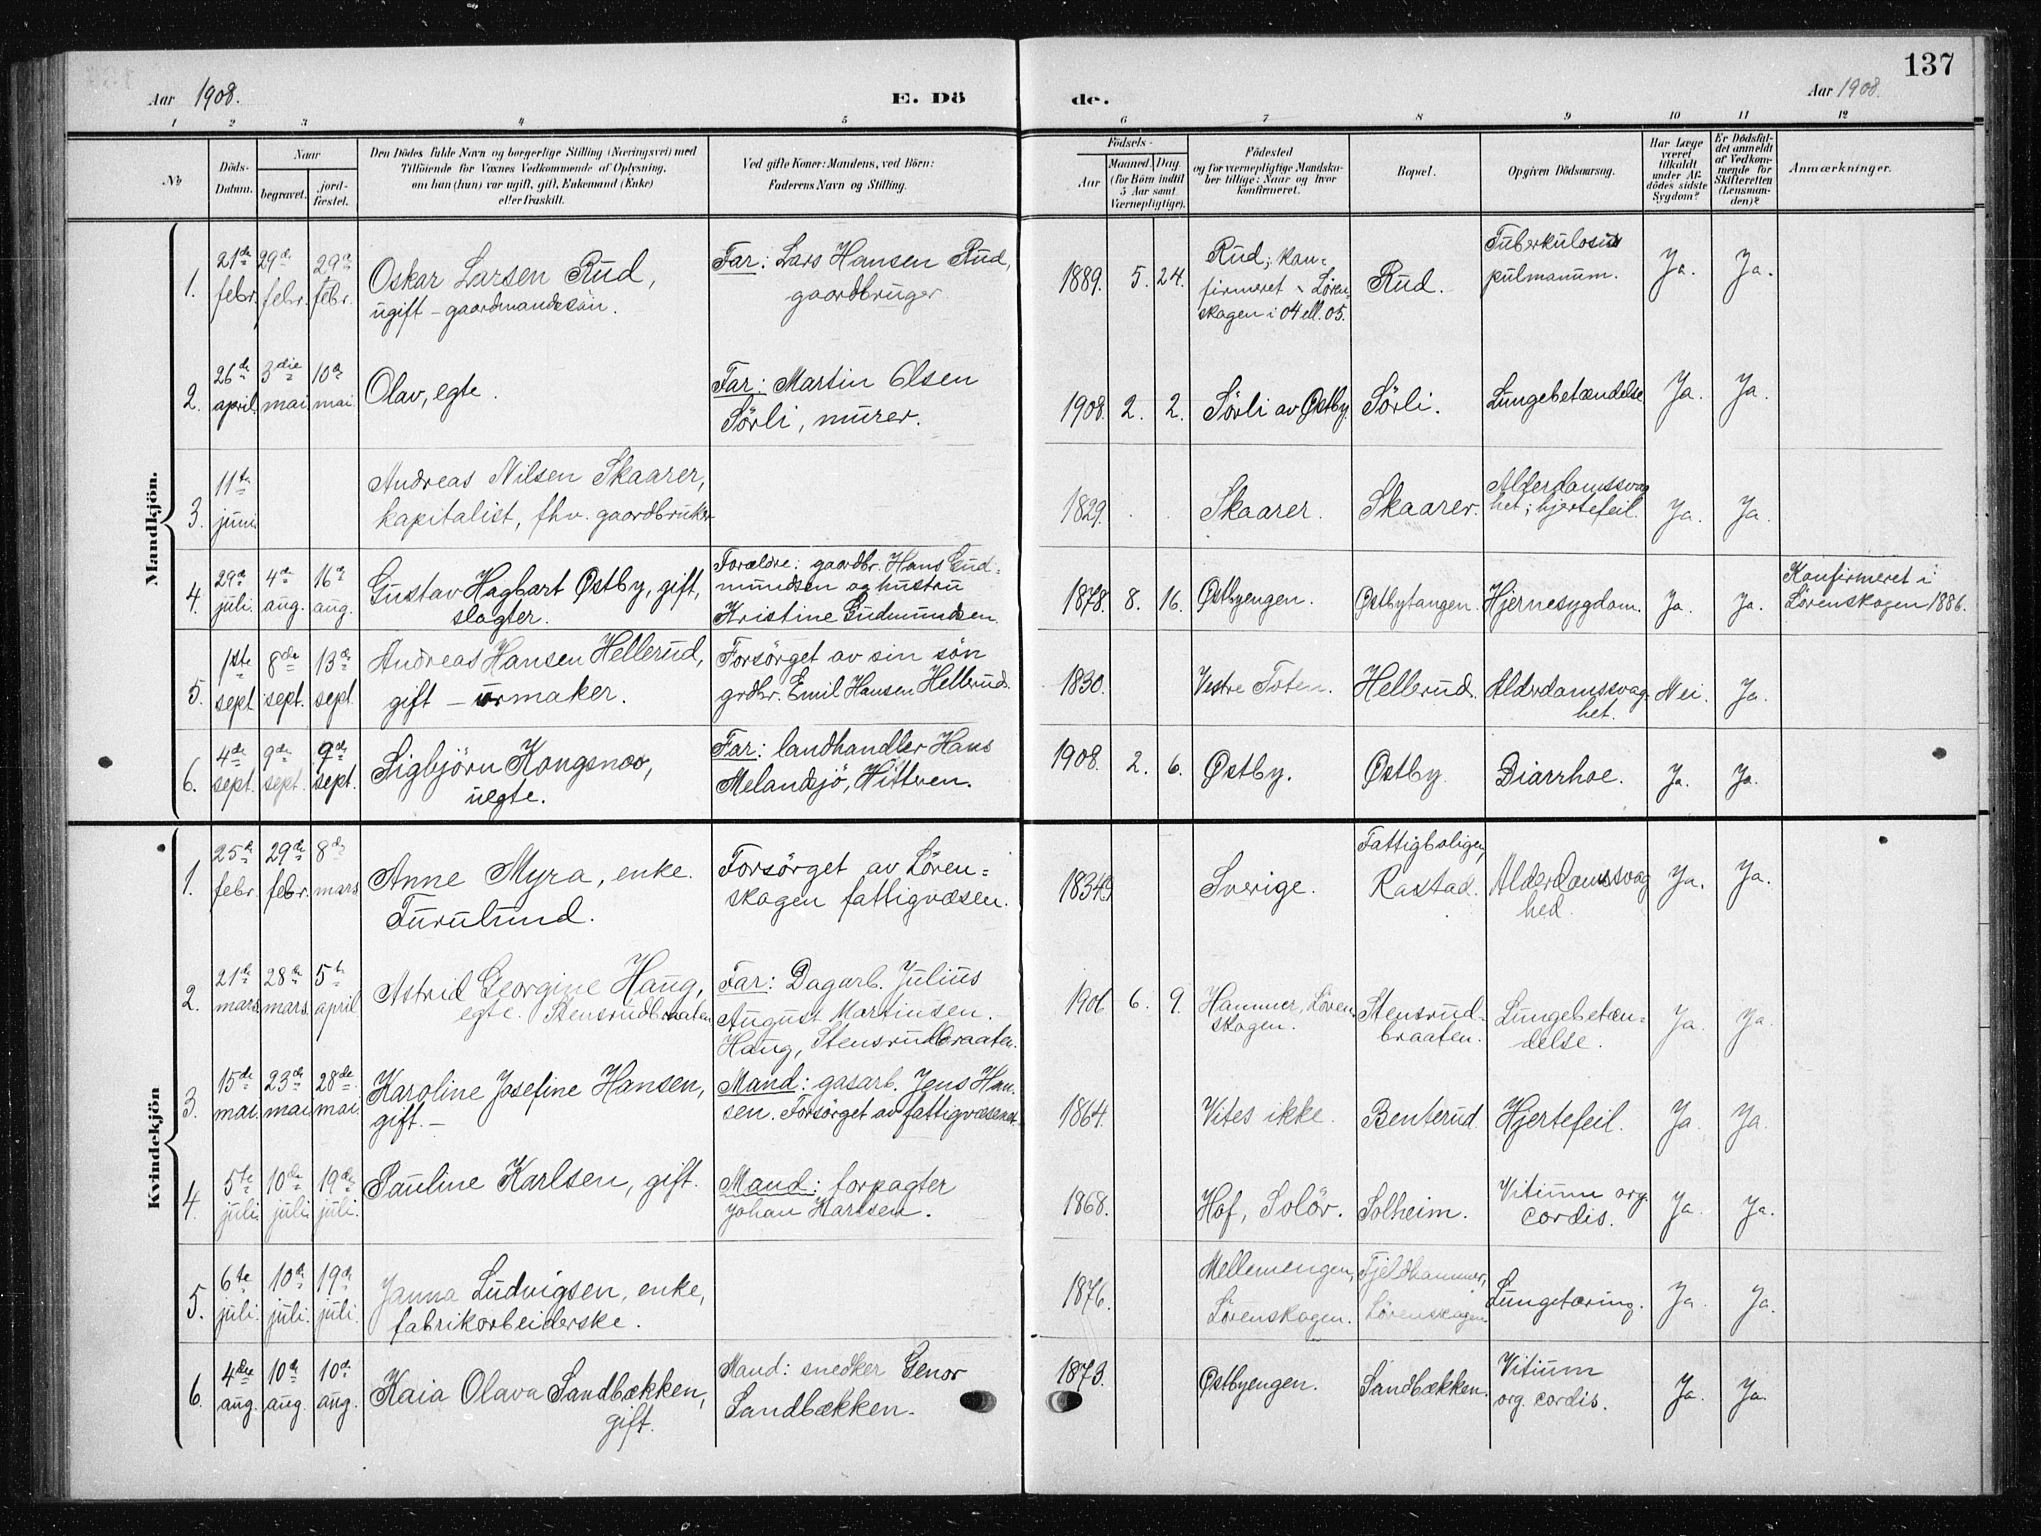 137
Aar 1908.
E. Dö
de.
Aar 1908.
1 2 3 4 5 6 7 8 9 10 11 12
No
Döds-
Datum.
Naar
begravet.
jord-
fæstet.
Den Dödes fulde Navn og borgerlige Stilling (Næringsvei) med
Tilföiende for Voxnes Vedkommende af Oplysning,
om han (hun) var ugift, gift, Enkemand (Enke)
eller fraskilt.
Ved gifte Koner: Mandens, ved Börn:
Faderens Navn og Stilling.
Födsels-
Aar
Maaned. Dag.
(for Börn indtil
5 Aar samt
Værnepligtige).
Födested
og for værnepligtige Mandska-
ber tillige: Naar og hvor
konfirmeret.
Bopæl.
Opgiven Dödsaarsag.
Har Læge
været
tilkaldt
under Af-
dödes sidste
Sygdom?
Er Dödsfal-
det anmeldt
af Vedkom-
mende for
Skifteretten
(Lensman-
den)?
Anmærkninger.
Mandkjön.
1. 21de febr. 29de febr. 29de febr.
Oskar Larsen Rud,
ugift – gaardmandssön.
Far: Lars Hansen Rud,
gaardbruger.
1889. 5. 24.
Rud; kon-
firmeret i Lören-
skogen i 04 ell. 05.
Rud.
Tuberkulosis
pulmanum.
Ja. Ja.
2. 26de april 3die mai 10de mai.
Olav, egte.
Far: Martin Olsen
Sörli, murer.
1908. 2. 2. Sörli av Østby. Sörli. Lungebetændelse Ja. Ja.
3. 11te juni
Andreas Nilsen Skaarer,
kapitalist, fhv. gaardbruker
1829. Skaarer. Skaarer.
Alderdomssvag
het; hjertefeil.
Ja. Ja.
4. 29de juli. 4de aug. 16de aug.
Gustav Hagbart Østby, gift,
slagter.
Forældre: gaardbr. Hans Gud-
mundsen og hustru
Kristine Gudmundsen.
1878. 8. 16. Østbyengen. Østbytangen. Hjernesygdom. Ja. Ja.
Konfirmeret i
Lörenskogen 1886.
5. 1ste sept. 8de sept. 13de sept.
Andreas Hansen Hellerud,
gift – urmaker.
Forsörget av sin sön
grdbr. Emil Hansen Hellerud.
1830. Vestre Toten. Hellerud. Alderdomssvag-
het.
Nei. Ja.
6. 4de sept. 9de sept. 9de sept.
Sigbjörn Kongsnoo,
uegte.
Far: landhandler Hans
Melandsjö, Hittren.
1908. 2. 6. Østby. Østby. Diarrhoe. Ja. Ja.
Kvindekjön
1. 25de febr. 29de febr. 8de mars
Anne Myra, enke.
Furulund.
Forsörget av Lören-
skogen fattigvæsen.
1834. Sverige.
Fattigboligen,
Rastad.
Alderdomssvag
hed.
Ja. Ja.
2. 21de mars 28de mars. 5te april
Astrid Georgine Haug,
egte. Stensrudbraaten
Far: Dagarb. Julius
August Martinsen.
Haug, Stensrudbraaten.
1906 6. 9.
Hammer, Lören-
skogen.
Stensrud-
braaten.
Lungebetæn-
delse.
Ja. Ja.
3. 15de mai. 23de mai 28de mai.
Karoline Josefine Hansen,
gift. –
Mand: gasarb. Jens Han-
sen. Forsörget av fattigvæsenet.
1864. Vites ikke. Benterud. Hjertefeil. Ja. Ja.
4. 5te juli. 10de juli. 19de juli.
Pauline Karlsen, gift.
Mand: forpagter
Johan Karlsen.
1868. Hof, Solör. Solheim.
Vitium org.
cordis.
Ja. Ja.
5. 6te juli. 10de juli. 19de juli.
Janna Ludvigsen, enke,
fabrikarbeiderske.
1876.
Mellemengen,
Lörenskogen.
Fjeldhammer,
Lörenskogen
Lungetæring.
Ja. Ja.
6. 4de aug. 10de aug. 10de aug.
Kaia Olava Sandbækken,
gift.
Mand: snedker Genor
Sandbækken.
1873. Østbyengen. Sandbækken.
Vitium
org. cordis.
Ja. Ja.